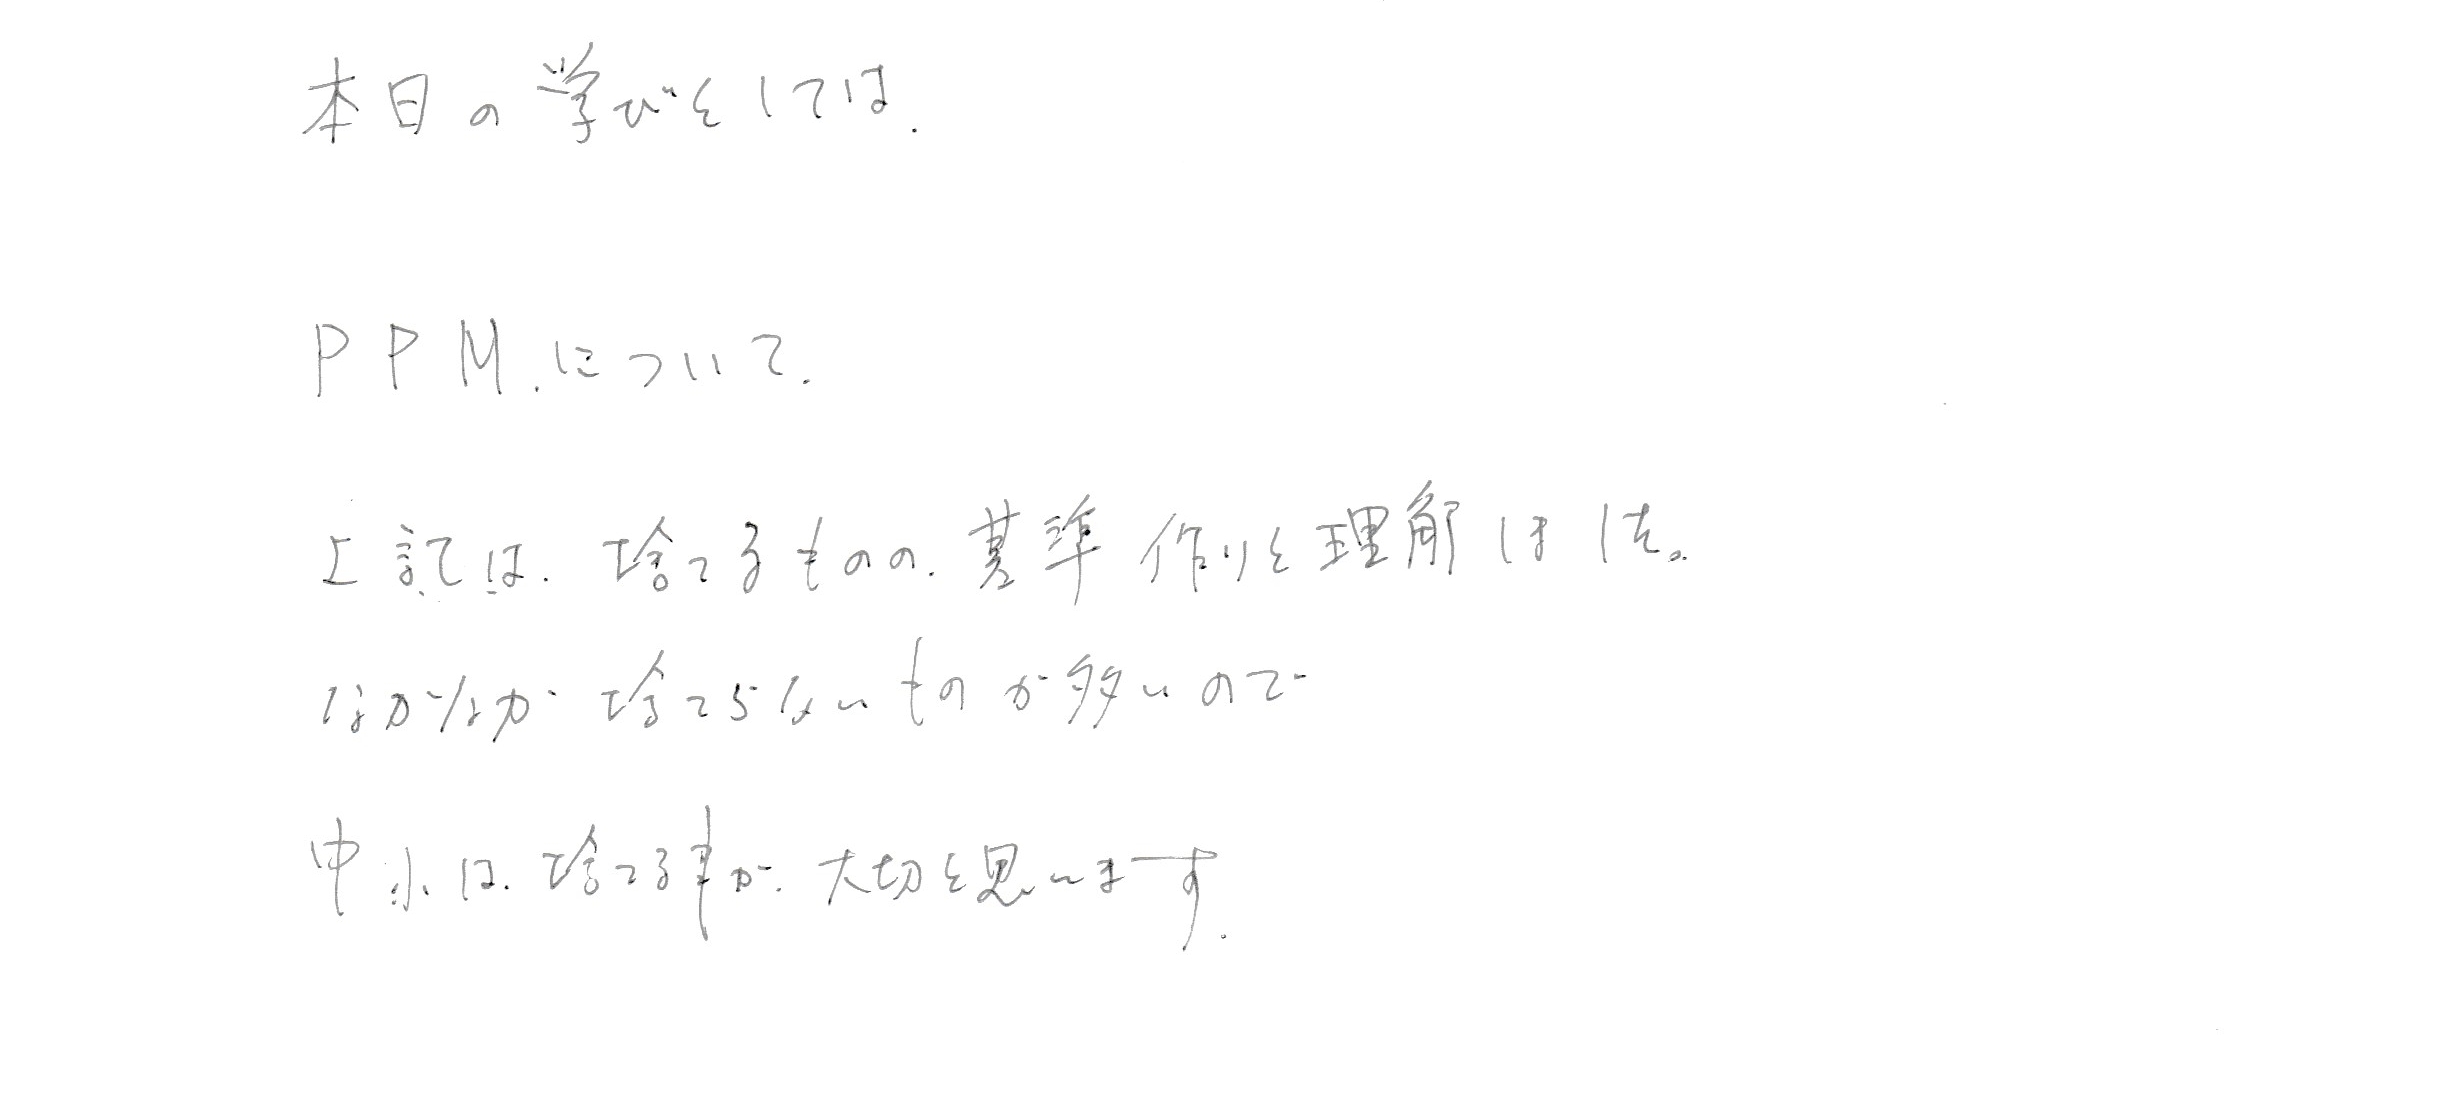 本日の学びとしては、
PPM.について、
上記は、捨てるものの、基準作りと理解しました。
なかなか捨てらないものが多いので
中小は、捨てる事が、大切と思います。